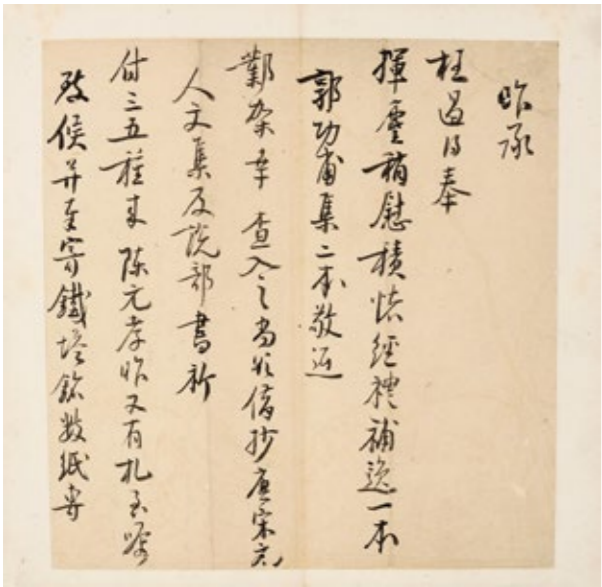 昨承
枉過得奉
揮麈稍慰積懷經禮補逸一本
郭功甫集二本敬返
鄴架幸查入之尚欲借抄唐宋元
人文集及說部書祈
付三五種來陳元孝昨又有札至囑
致候并至寄鐵塔銘數紙寄